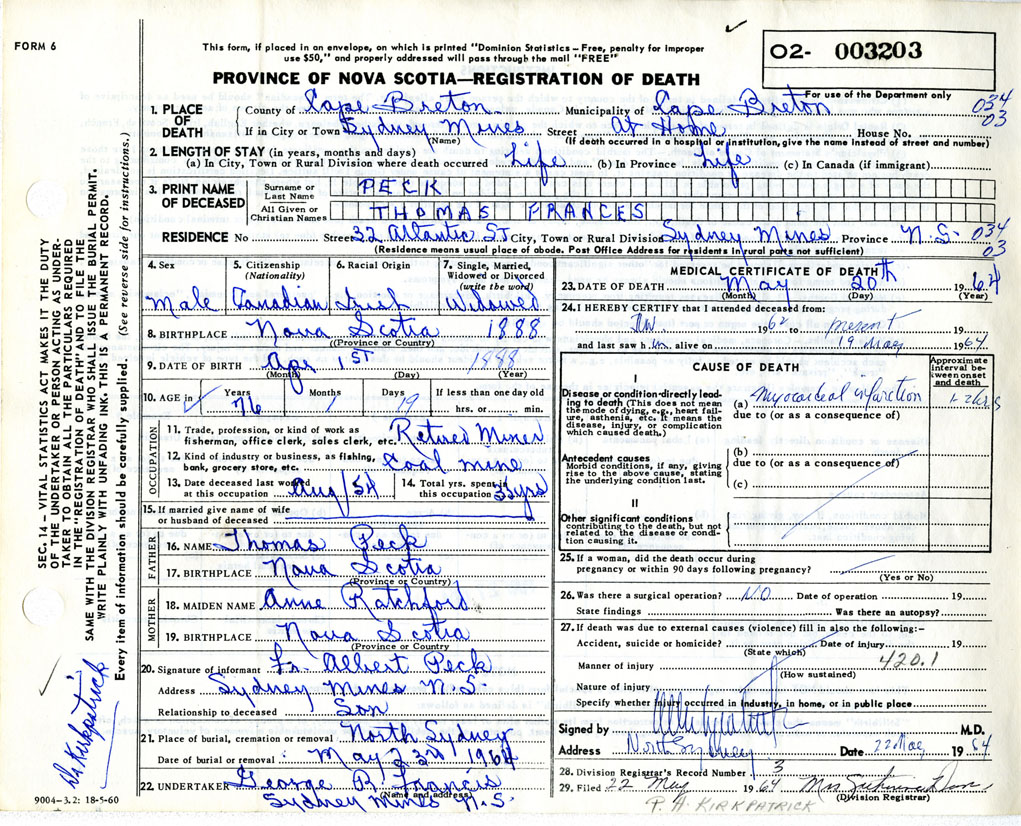 FORM 6
This form, if placed in an envelope, on which is printed "Dominion Statistics – Free, penalty for improper
use $50," and properly addressed will pass through the mail "FREE"
O2- 003203
For use of the Department only
PROVINCE OF NOVA SCOTIA—REGISTRATION OF DEATH
1. PLACE OF DEATH County of Cape Breton Municipality of Cape Breton 034
If in City or Town Sydney Mines Street At Home House No. 03
(Name) (If death occurred in a hospital or institution, give the name instead of street and number)
2. LENGTH OF STAY (in years, months and days)
(a) In City, Town or Rural Division where death occurred Life (b) In Province Life (c) In Canada (if immigrant)
3. PRINT NAME OF DECEASED
Surname or Last Name PECK
All Given or Christian Names THOMAS FRANCES
RESIDENCE No Street 32 Atlantic ST City, Town or Rural Division Sydney Mines Province N.S. 034
03
(Residence means usual place of abode. Post Office Address for residents in rural parts not sufficient)
4. Sex Male
5. Citizenship (Nationality) Canadian
6. Racial Origin Irish
7. Single, Married, Widowed or Divorced (write the word) Widowed
8. BIRTHPLACE Nova Scotia 1888
(Province or Country)
9. DATE OF BIRTH Apr 1ST 1888
(Month) (Day) (Year)
10. AGE in Years 76 Months 1 Days 19 If less than one day old hrs. or min.
OCCUPATION
11. Trade, profession, or kind of work as fisherman, office clerk, sales clerk, etc. Retired Miner
12. Kind of industry or business, as fishing, bank, grocery store, etc. Coal mine
13. Date deceased last worked at this occupation Aug/54
14. Total yrs. spent in this occupation 35yrs
15. If married give name of wife or husband of deceased
FATHER
16. NAME Thomas Peck
17. BIRTHPLACE Nova Scotia
(Province or Country)
MOTHER
18. MAIDEN NAME Anne Ratchford
19. BIRTHPLACE Nova Scotia
(Province or Country)
20. Signature of informant Fr. Albert Peck
Address Sydney Mines N.S.
Relationship to deceased Son
21. Place of burial, cremation or removal North Sydney
Date of burial or removal May 23rd 1964
22. UNDERTAKER George R. Francis
(Name and address)
Sydney Mines N.S.
9004-3.2: 18-5-60
MEDICAL CERTIFICATE OF DEATH
23. DATE OF DEATH May 20th 1964
(Month) (Day) (Year)
24. I HEREBY CERTIFY that I attended deceased from:
1962 to present 19
and last saw him alive on 19 May 1964
CAUSE OF DEATH
Approximate interval between onset and death
I
Disease or condition directly leading to death (This does not mean the mode of dying, e.g., heart failure, asthenia, etc. It means the disease, injury, or complication which caused death.)
(a) Myocardial infarction 1-2 hrs
due to (or as a consequence of)
Antecedent causes
Morbid conditions, if any, giving rise to the above cause, stating the underlying condition last.
(b)
due to (or as a consequence of)
(c)
II
Other significant conditions contributing to the death, but not related to the disease or condition causing it.
25. If a woman, did the death occur during pregnancy or within 90 days following pregnancy?
(Yes or No)
26. Was there a surgical operation? NO Date of operation 19
State findings Was there an autopsy?
27. If death was due to external causes (violence) fill in also the following:–
Accident, suicide or homicide? Date of injury 19
(State which)
Manner of injury 420.1
(How sustained)
Nature of injury
Specify whether injury occurred in industry, in home, or in public place
Signed by M.D.
Address North Sydney Date 22 May 1964
28. Division Registrar's Record Number 3
29. Filed 22 May 1964 Mrs
(Division Registrar)
P. A. KIRKPATRICK
SEC. 14 – VITAL STATISTICS ACT MAKES IT THE DUTY
OF THE UNDERTAKER OR PERSON ACTING AS UNDER-
TAKER TO OBTAIN ALL THE PARTICULARS REQUIRED
IN THE "REGISTRATION OF DEATH" AND TO FILE THE
SAME WITH THE DIVISION REGISTRAR WHO SHALL ISSUE THE BURIAL PERMIT.
WRITE PLAINLY WITH UNFADING INK. THIS IS A PERMANENT RECORD.
Every item of information should be carefully supplied. (See reverse side for instructions.)
Kirkpatrick